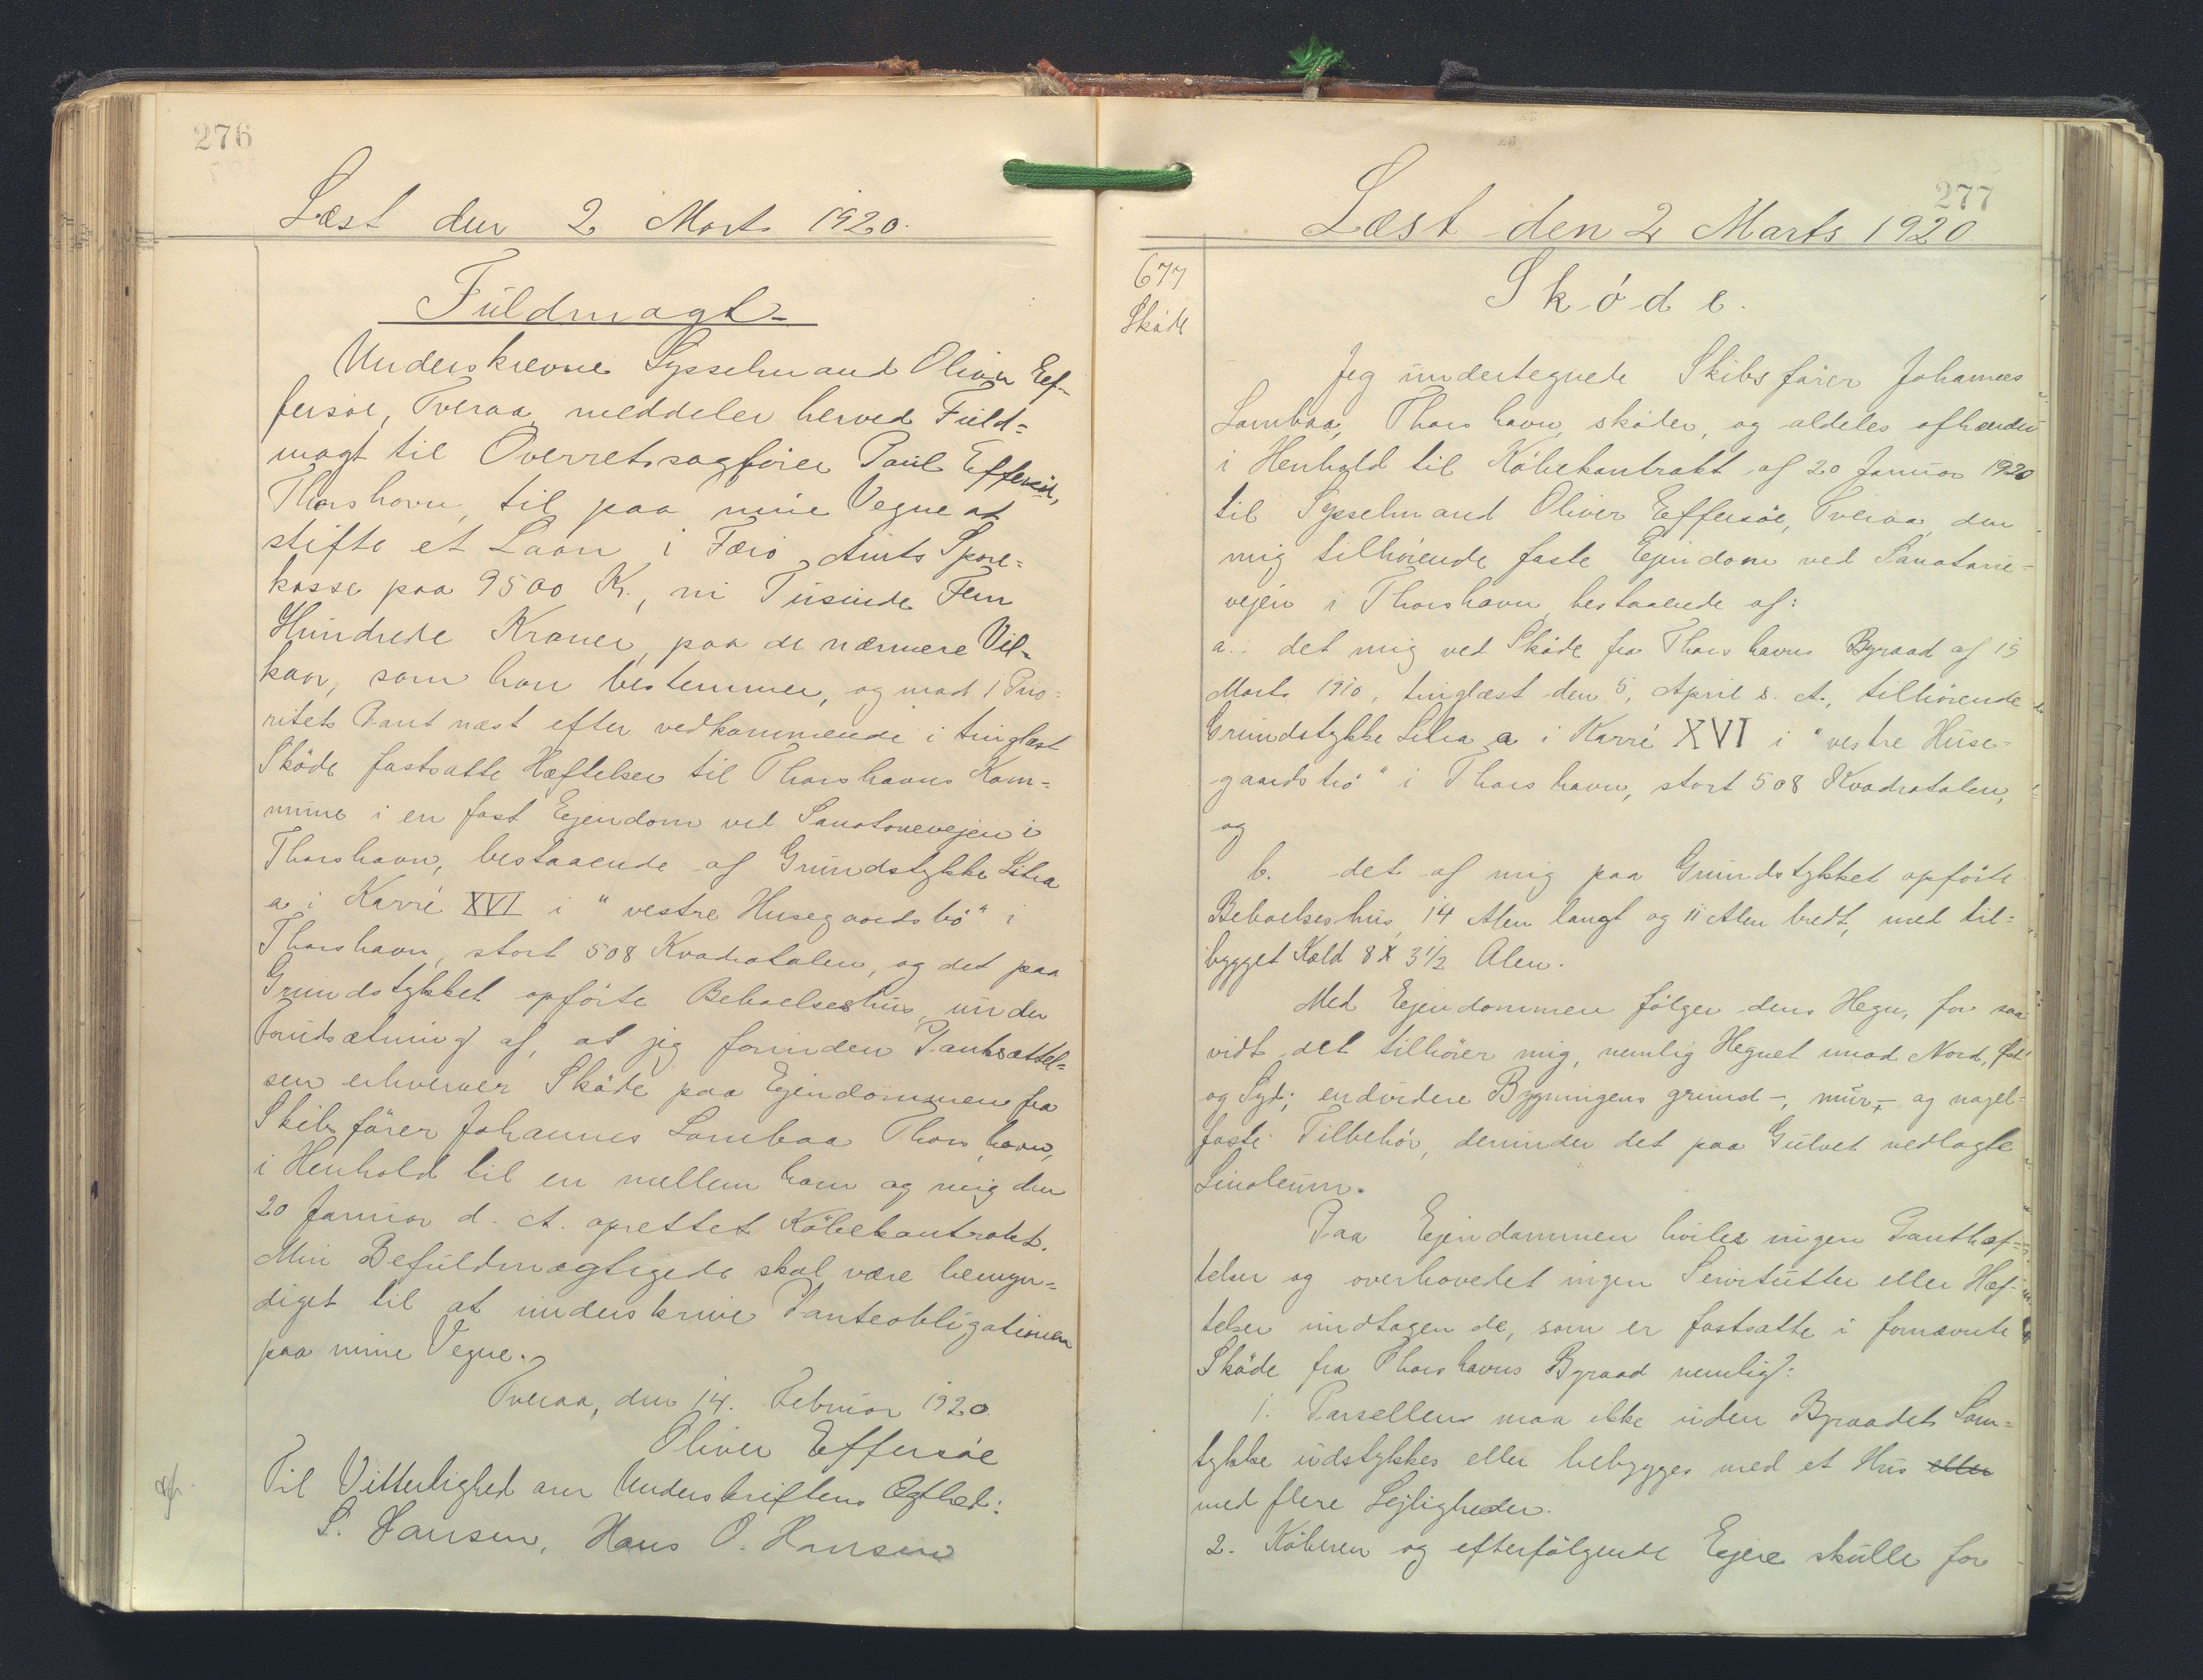 276
Læst den 2 Marts 1920.
Fuldmagt
Underskrevne Sysselmand Oliver Eef-
fersöe, Tveraa meddeler herved Fuld=
magt til Overretssagförer Poul Effersöe,
Thorshavn, til paa mine Vegne at
stifte et Laan i Færö Amts Spare=
kasse paa 9500 Kr., ni Tusinde Fem
Hundrede Kroner, paa de nærmere Vil=
kaar, som han bestemmer, og mod 1 Prio=
ritets Pant næst efter vedkommende i tinglæst
Sköde fastsatte Hæftelser til Thorshavns Kom=
mune i en fast Ejendom ved Sanatorievejen i
Thorshavn, bestaaende af Grundstykke Litra
a i Karré XVI i "vestre Husegaardsbö" i
Thorshavn, stort 508 Kvadratalen, og det paa
Grundstykket opförte Beboelseshus, under
Forudsætning af, at jeg forinden Pantsættel=
sen erhverver Sköde paa Ejendommen fra
Skibsförer Johannes Lambaa Thorshavn,
i Henhold til en mellem ham og mig den
20 Januar d. A. oprettet Köbekontrakt.
Min Befuldmægtigede skal være bemyn=
diget til at underskrive Panteobligationen
paa mine Vegne.
Tveraa, den 14. Februar 1920.
Oliver Effersöe
Til Vitterlighed om Underskriftens Ægthed:
S. Hansen, Hans O. Hansen
277
Læst den 2 Marts 1920
677
Sköde
Sköde.
Jeg undertegnede Skibsförer Johannes
Lambaa, Thorshavn, sköder, og aldeles afhænder
i Henhold til Köbekontrakt af 20 Januar 1920
til Sysselmand Oliver Effersöe, Tveraa, den
mig tilhörende faste Ejendom ved Sanatorie=
vejen i Thorshavn bestaaende af:
a.: det mig ved Sköde fra Thorshavns Byraad af 15
Marts 1910, tinglæst den 5, April s. A., tilhörende
Grundstykke Litra a i Karré XVI i "vestre Huse=
gaardsbö" i Thorshavn, stort 508 Kvadratalen,
og
b. det af mig paa Grundstykket opförte
Beboelseshus, 14 Alen langt og 11 Alen bredt, med til=
bygget Kald 8 X 3 1/2 Alen.
Med Ejendommen fölger dens Hegn, for saa
vidt det tilhörer mig, nemlig Hegnet imod Nord, Öst
og Syd; endvidere Bygningens grund-, mur-, og nagel-
faste Tilbehör, derunder det paa Gulvet vedlagte
Linoleum.
Paa Ejendommen hviler ingen Panthæf=
telser og overhovedet ingen Servitutter eller Hæf-
telser undtagen de, som er fastsatte i fornævnte
Sköde fra Thorshavns Byraad nemlig:
1. Parsellen maa ikke uden Byraadets Sam=
tykke udstykkes eller bebygges med et Hus eller
med flere Lejligheder.
2. Köberen og efterfölgende Ejere skulle for